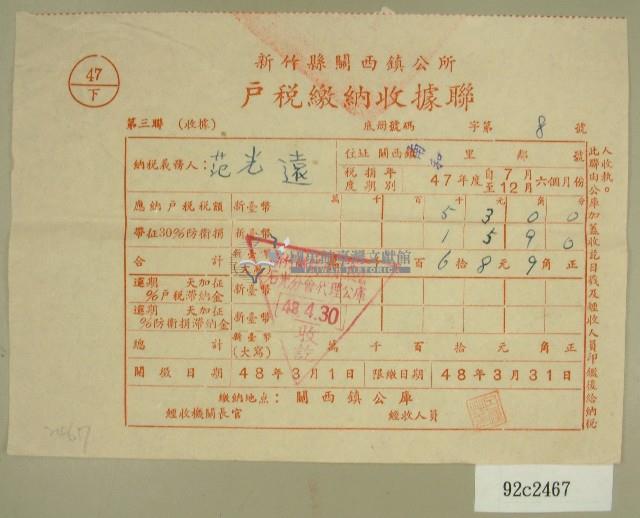 47
下
新竹縣關西鎮公所
戶稅繳納收據聯
第三聯 (收據) 底冊號碼 字第 8 號
納稅義務人: 范光遠 住址 關西鎮 南和 里 鄰 號
稅捐年度期別 47年度 自7月至12月 六個月份
應納戶稅稅額 新臺幣 萬 千 百 十 元 角 分
5 3 0 0
帶征30%防衛捐 新臺幣
1 5 9 0
合計 新臺幣(大寫) 百 6 拾 8 元 9 角 正
逾期 天加征 %戶稅滯納金 新臺幣
逾期 天加征 %防衛捐滯納金 新臺幣
總計 新臺幣(大寫) 萬 千 百 十 元 角 正
開徵日期 48年3月1日 限繳日期 48年3月31日
繳納地点: 關西鎮公庫
經收機關長官 經收人員
此聯由公庫加蓋收訖日戳及經收人員印鑑後給納稅人收執。
國史館臺灣文獻館
TAIWAN HISTORICA
代理公庫
48.4.30
收訖
2467
92c2467